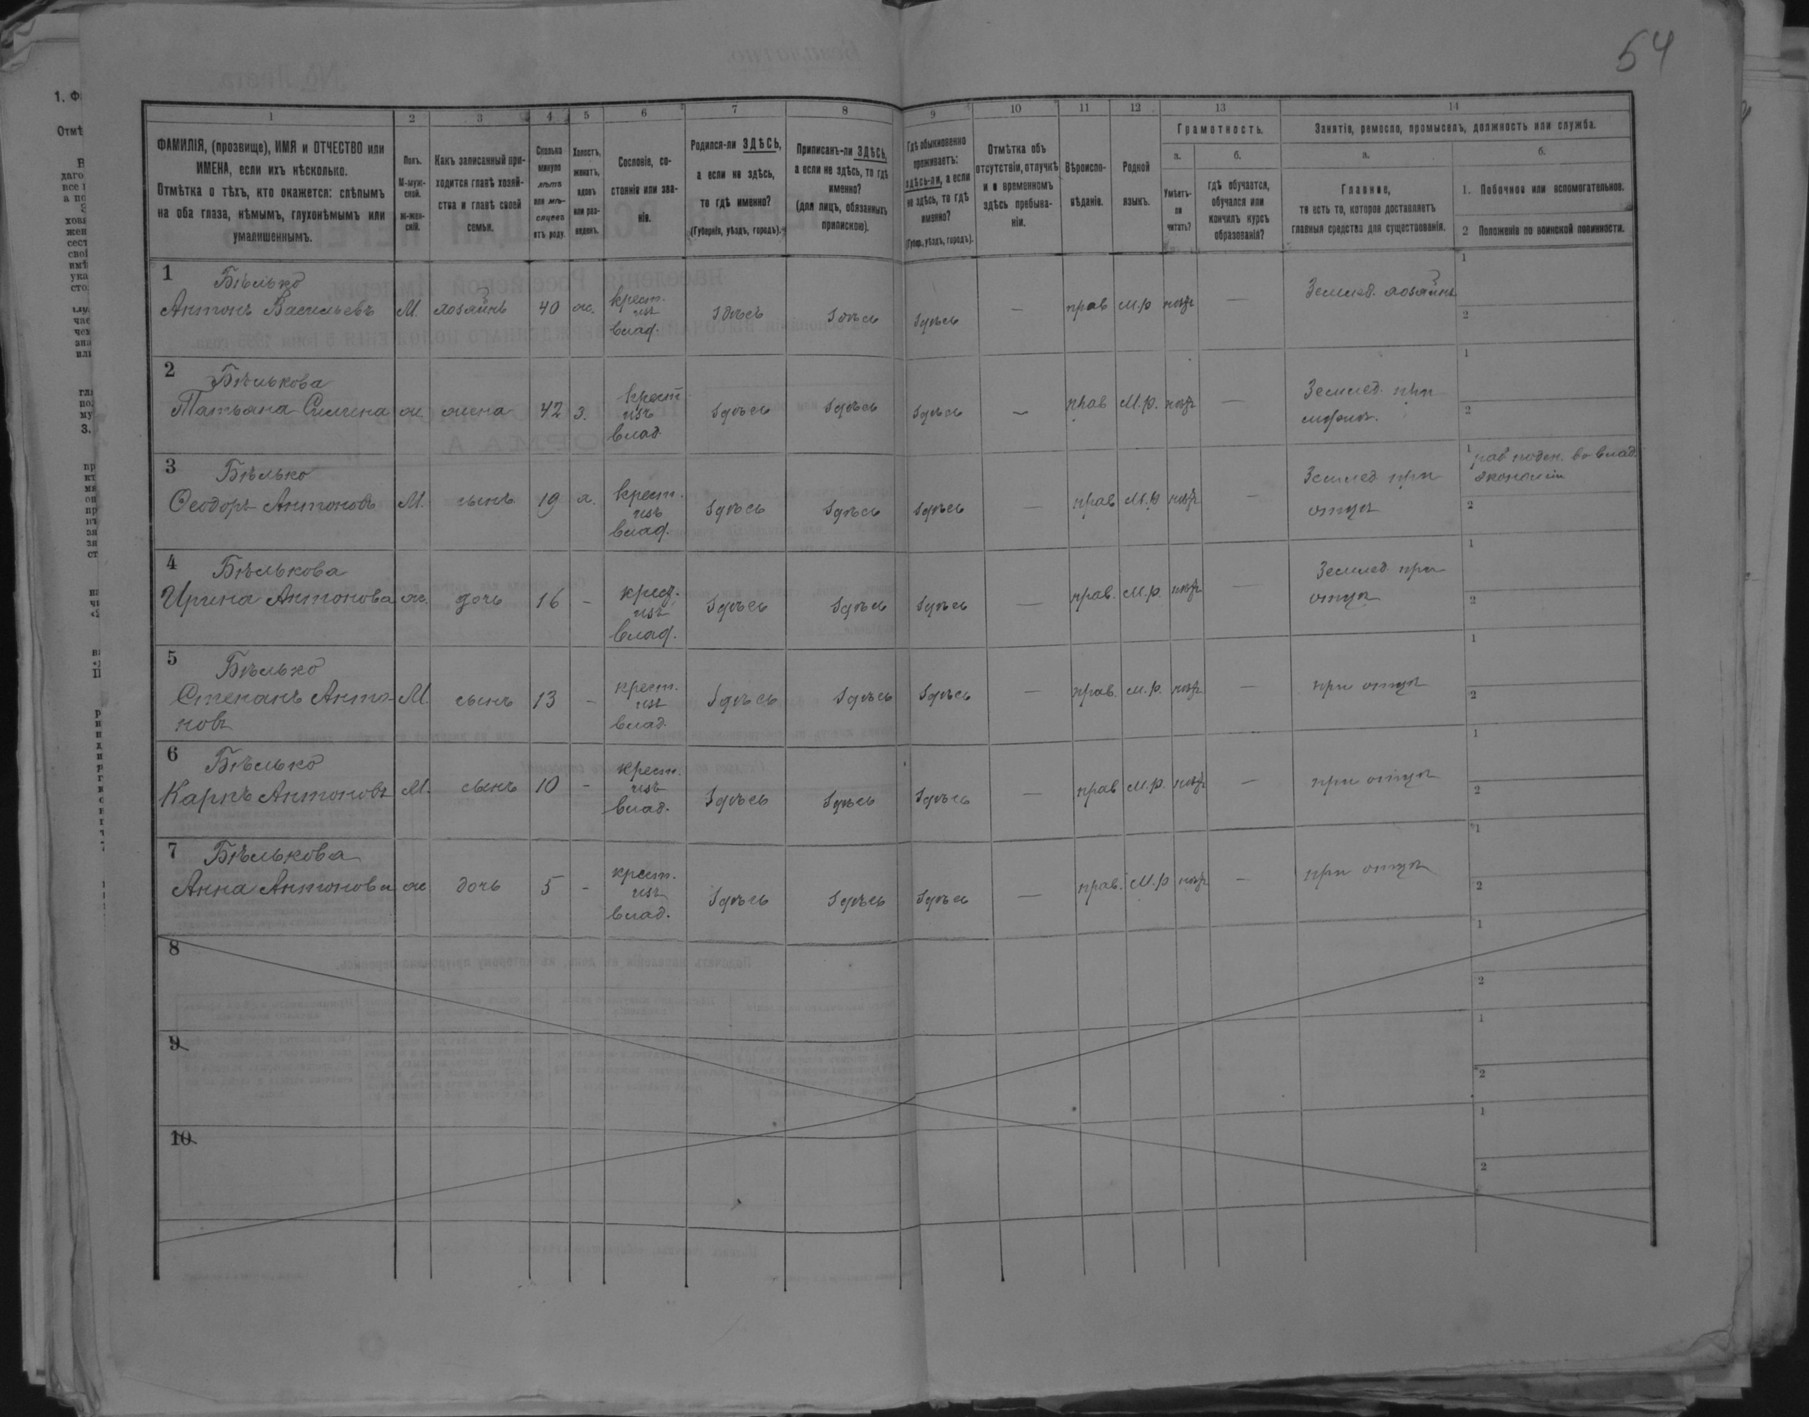 54
1 2 3 4 5 6 7 8 9 10 11 12 13 14
ФАМИЛІЯ, (прозвище), ИМЯ и ОТЧЕСТВО или
ИМЕНА, если ихъ нѣсколько.
Отмѣтка о тѣхъ, кто окажется: слѣпымъ
на оба глаза, нѣмымъ, глухонѣмымъ или
умалишеннымъ.
Полъ.
М-муж-
ской.
Ж-жен-
скій.
Какъ записанный при-
ходится главѣ хозяй-
ства и главѣ своей
семьи.
Сколько
минуло
лѣтъ
или мѣ-
сяцевъ
отъ роду.
Холостъ,
женатъ,
вдовъ
или раз-
веденъ.
Сословіе, со-
стояніе или зва-
ніе.
Родился-ли ЗДѢСЬ,
а если не здѣсь,
то гдѣ именно?
(Губернія, уѣздъ, городъ).
Приписанъ-ли ЗДѢСЬ,
а если не здѣсь, то гдѣ
именно?
(для лицъ, обязанныхъ
припискою).
Гдѣ обыкновенно
проживаетъ:
здѣсь-ли, а если
не здѣсь, то гдѣ
именно?
(Губер., уѣздъ, городъ).
Отмѣтка объ
отсутствіи, отлучкѣ
и о временномъ
здѣсь пребыва-
ніи.
Вѣроиспо-
вѣданіе.
Родной
языкъ.
Грамотность.
а.
Умѣетъ-
ли
читать?
б.
гдѣ обучается,
обучался или
кончилъ курсъ
образованія?
Занятіе, ремесло, промыселъ, должность или служба.
а.
Главное,
то есть то, которое доставляетъ
главныя средства для существованія.
б.
1. Побочное или вспомогательное.
2 Положеніе по воинской повинности.
1 Бѣлько
Антонъ Васильевъ М. хозяинъ 40 ж. крест. изъ влад. здѣсь здѣсь здѣсь — прав м.р негр — Землед. хозяинъ
1
2
2 Бѣлькова
Татьяна Симина ж жена 42 з. крест изъ влад здѣсь здѣсь здѣсь — прав м.р. негр — Землед. при
1
2
3 Бѣлько
Ѳеодоръ Антоновъ М. сынъ 19 х. крест. изъ влад. здѣсь здѣсь здѣсь — прав м.р негр — Землед при отцѣ
1 раб поден. во влад. экономіи
2
4 Бѣлькова
Ирина Антонова ж. дочь 16 - крест. изъ влад. здѣсь здѣсь здѣсь — прав. м.р. негр — Землед при отцѣ
1
2
5 Бѣлько
Степанъ Анто-
новъ М сынъ 13 - крест. изъ влад. здѣсь здѣсь здѣсь — прав. м.р. негр — при отцѣ
1
2
6 Бѣлько
Карпъ Антоновъ М. сынъ 10 - крест. изъ влад. здѣсь здѣсь здѣсь — прав м.р. негр — при отцѣ
1
2
7 Бѣлькова
Анна Антонова ж дочь 5 - крест. изъ влад. здѣсь здѣсь здѣсь — прав. м.р негр — при отцѣ
1
2
8
1
2
9
1
2
10
1
2